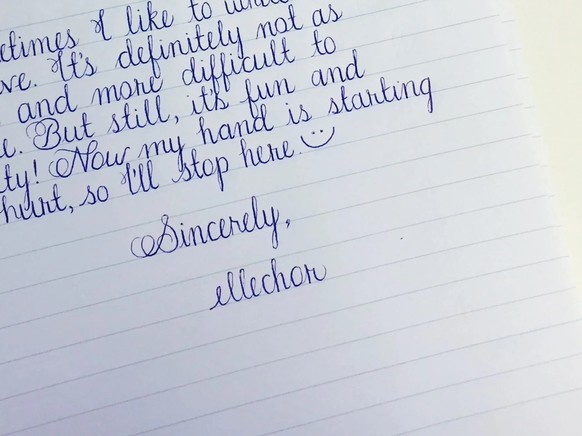 I like to
It's definitely not as
and more difficult to
But still, it's fun and
Now my hand is starting
hurt, so I'll stop here. :)
Sincerely,
ellechor